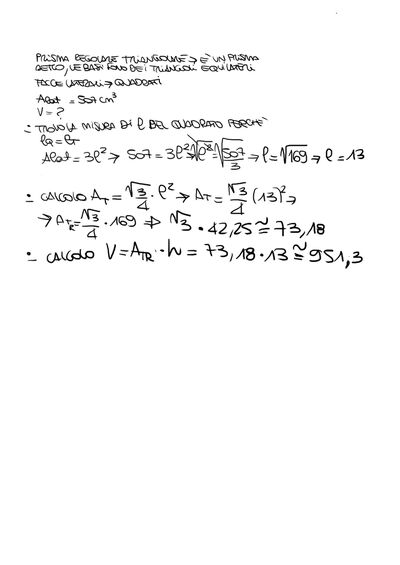 PRISMA REGOLARE TRIANGOLARE → È UN PRISMA
RETTO, LE BASI SONO DEI TRIANGOLI EQUILATERI
FACCE LATERALI → QUADRATI
Alat = 507 cm³
V = ?
∴ TROVO LA MISURA DI l DEL QUADRATO PERCHÉ
lQ = lT
Alat = 3l² → 507 = 3l² √l² = √507/3 → l = √169 → l = 13
∴ CALCOLO AT = √3/4 · l² → AT = √3/4 (13)² →
→ ATR = √3/4 · 169 ⇒ √3 · 42,25 ≅ 73,18
∴ CALCOLO V = ATR · h = 73,18 · 13 ≅ 951,3